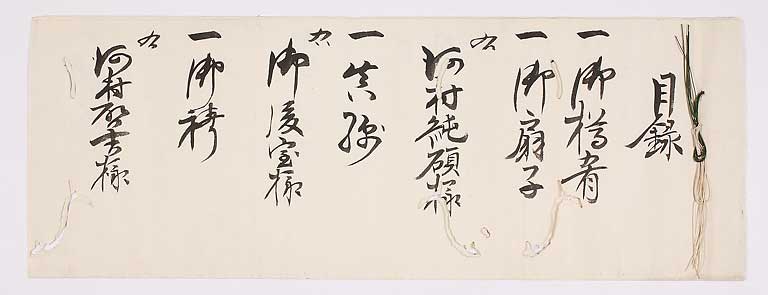 目録
一御樽肴
一御扇子
右
河村純碩様
一真綿
右
御後室様
一御袴
右
河村 吉様